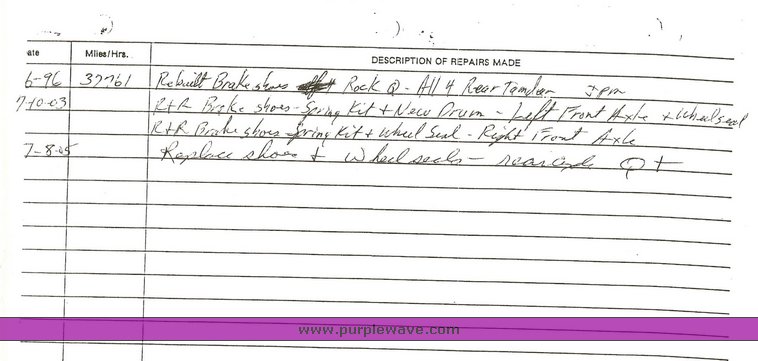 ate Miles/Hrs. DESCRIPTION OF REPAIRS MADE
6-96 37761 Rebuilt Brake shoes Rock Q - All 4 Rear Tandem
7-10-03 R+R Brake shoes - Spring Kit + New Drum - Left Front Axle + Wheel seal
R+R Brake shoes - Spring Kit + Wheel Seal - Right Front Axle
7-8-05 Replace shoes + wheel seals -
www.purplewave.com